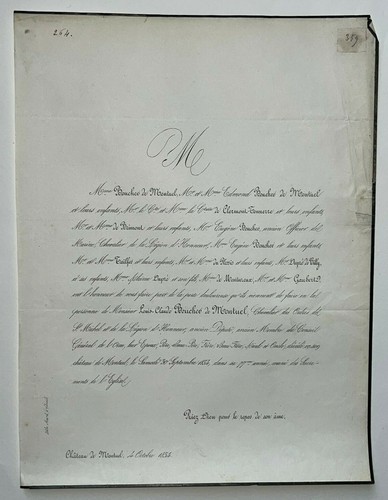 264.
359
M
M.me Boucher de Montuel, M.r et M.me Edmond Boucher de Montuel
et leurs enfants, M.r le C.te et M.me la C.tesse de Clermont-Tonnerre et leurs enfants,
M.r et M.me de et leurs enfants, M.r Eugène Boucher, ancien Officier de
Marine, Chevalier de la Légion d'Honneur, M.me Eugène Boucher et leurs enfants,
M.r et M.me et leurs enfants, M.r et M.me de et leurs enfants, M.me Dupré de
et ses enfants, M.me Dupré et son fils, M.me de M.r et M.me
ont l'honneur de vous faire part de la perte douloureuse qu'ils viennent de faire en la
personne de Monsieur Louis-Claude Boucher de Montuel, Chevalier des Ordres de
S.t Michel et de la Légion d'Honneur, ancien Député, ancien Membre du Conseil
Général de l'Oise, leur Epoux, Père, Beau-Père, Frère, Beau-Frère, Oncle et , décédé en son
château de Montuel, le Samedi 30 Septembre 1854, dans sa 77.me année, muni des Sacre-
ments de l'Eglise.
Priez Dieu pour le repos de son âme.
Château de Montuel, 4 Octobre 1854.